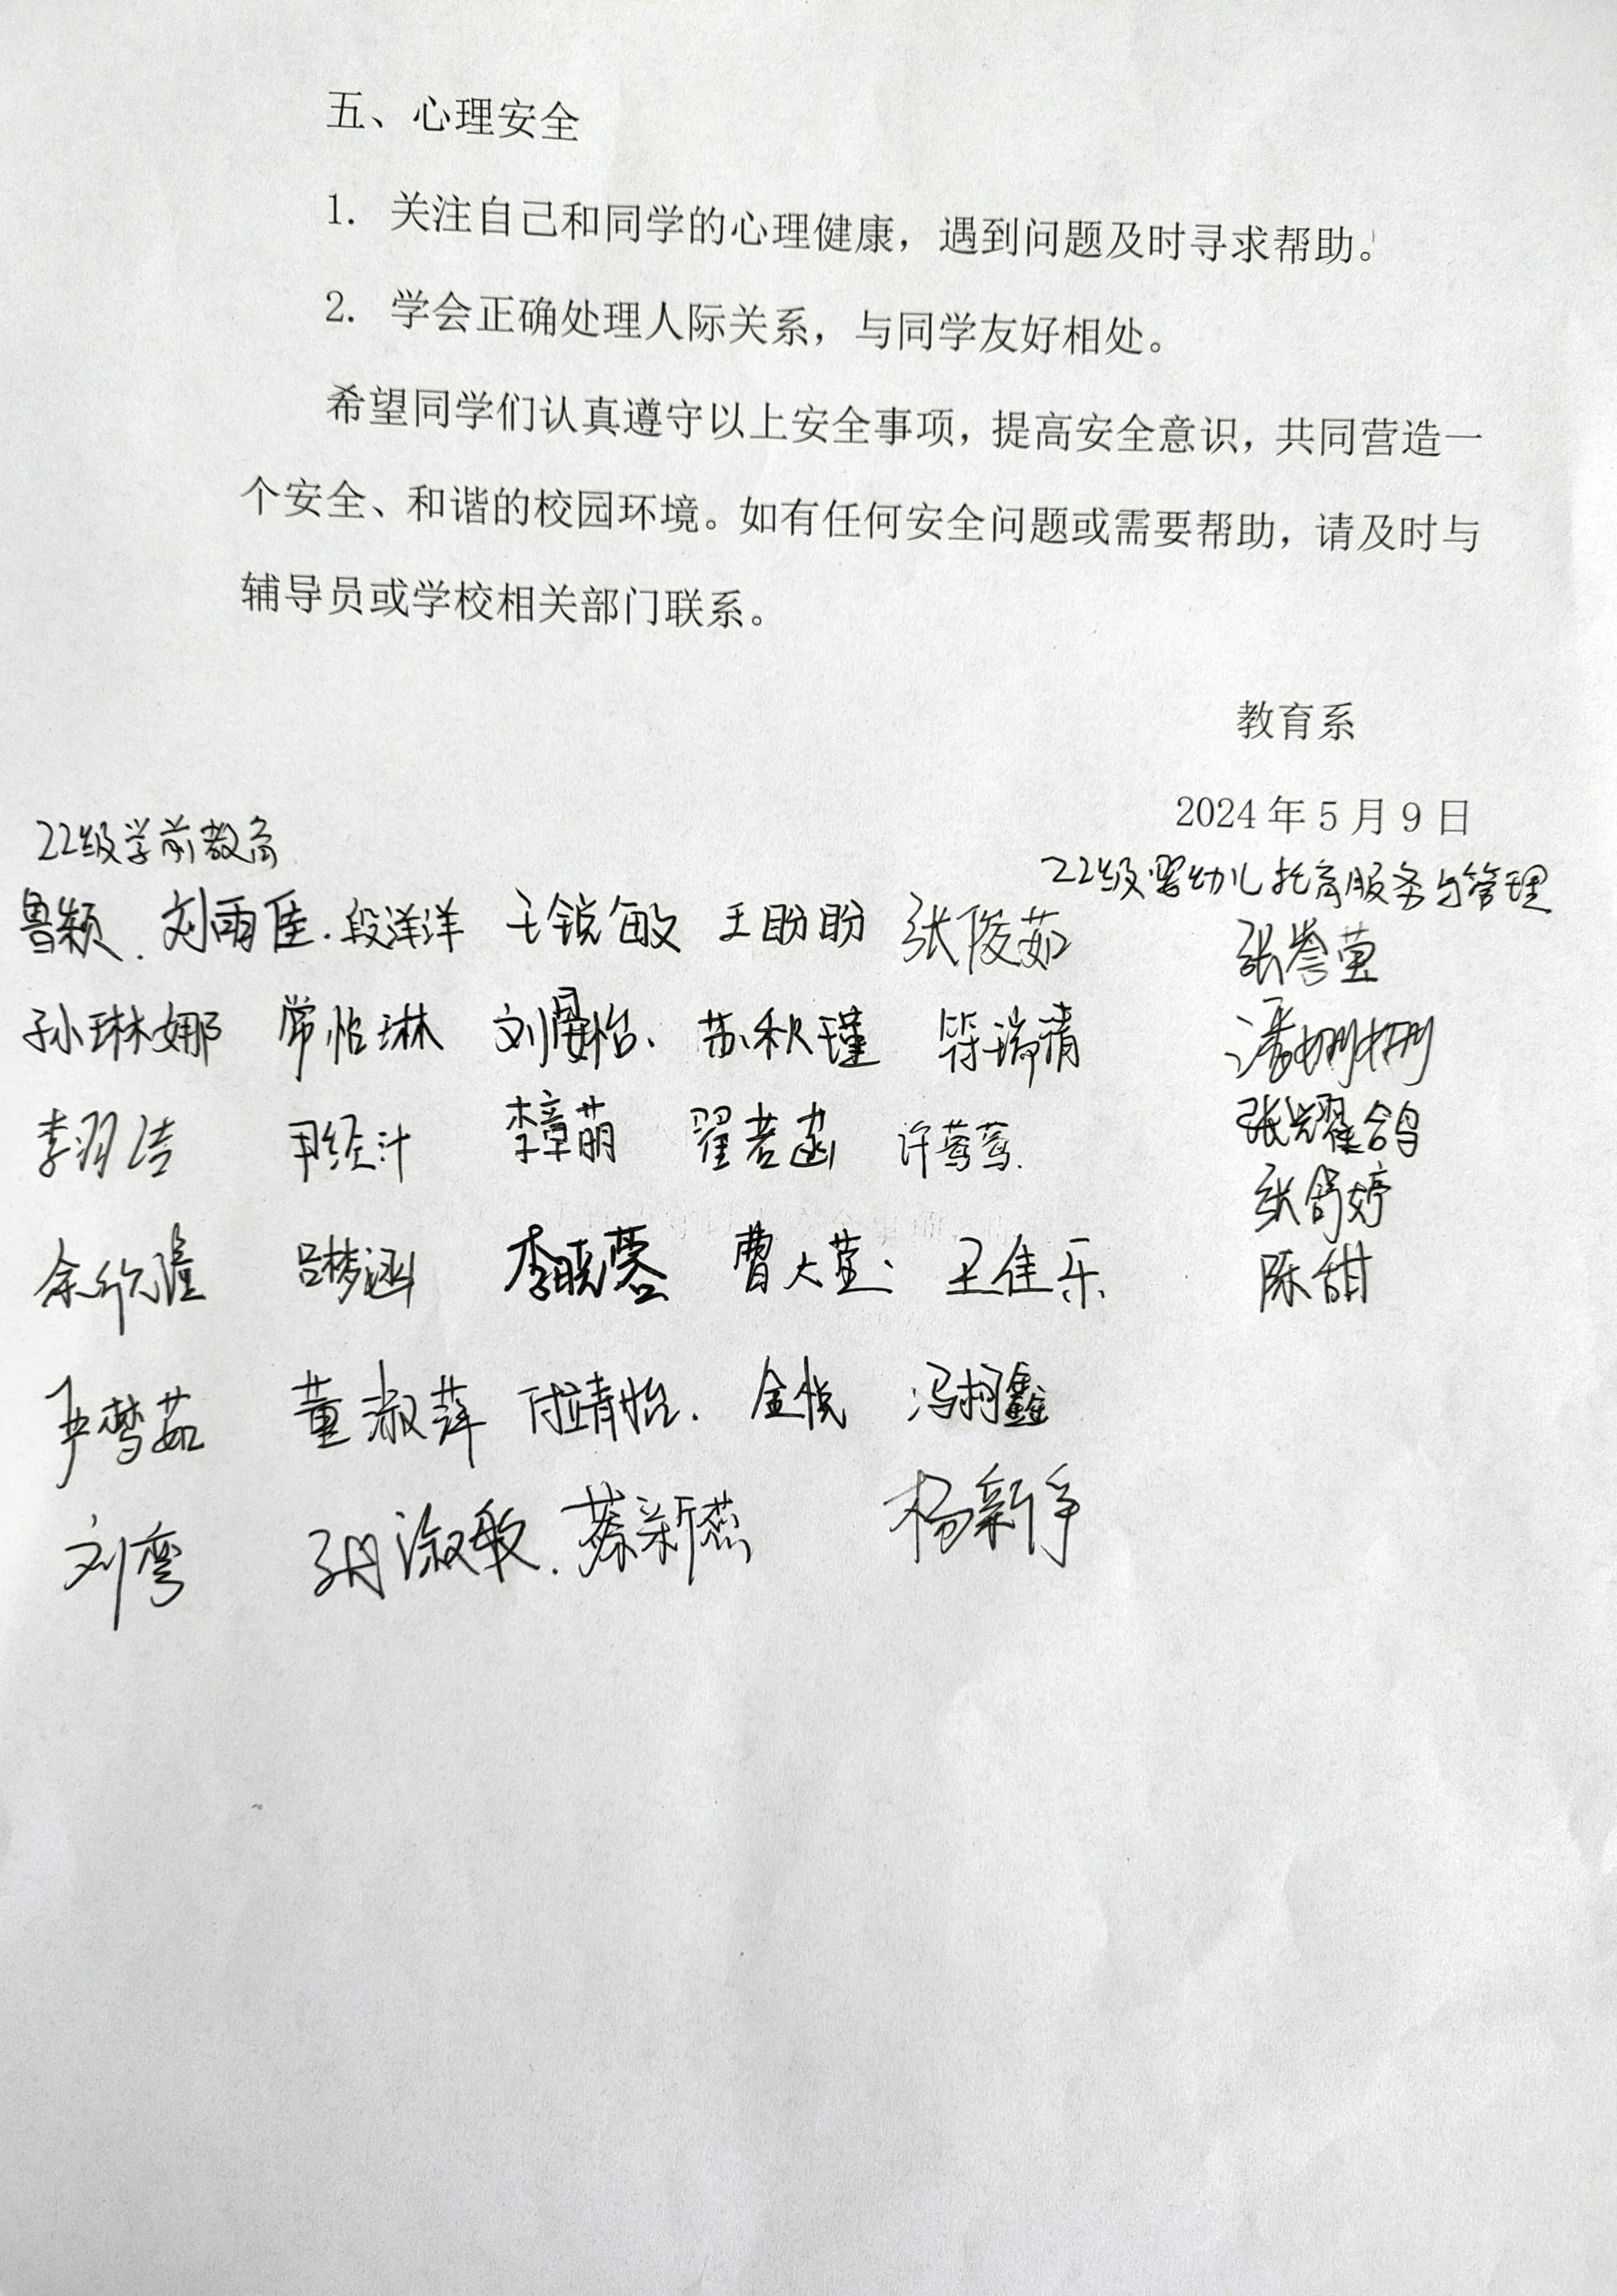 五、心理安全
1. 关注自己和同学的心理健康，遇到问题及时寻求帮助。
2. 学会正确处理人际关系，与同学友好相处。
希望同学们认真遵守以上安全事项，提高安全意识，共同营造一
个安全、和谐的校园环境。如有任何安全问题或需要帮助，请及时与
辅导员或学校相关部门联系。
教育系
2024年5月9日
22级学前教育
22级婴幼儿托育服务与管理
鲁颖. 刘雨佳. 段洋洋 王锐敏 王盼盼 张俊茹 张誉萤
孙琳娜 常怡琳 刘晏怡. 苏秋瑾 符瑞清 潘姗姗
李羽洁 李章萌 翟若函 许莺莺. 张耀鸽
张舒婷
余欣隆 吕梦涵 李晓蓉 曹大莹. 王佳乐 陈甜
尹梦茹 董淑萍 付靖怡. 金悦 冯柯鑫
刘弯 淑敏. 蔡新燕 杨新争